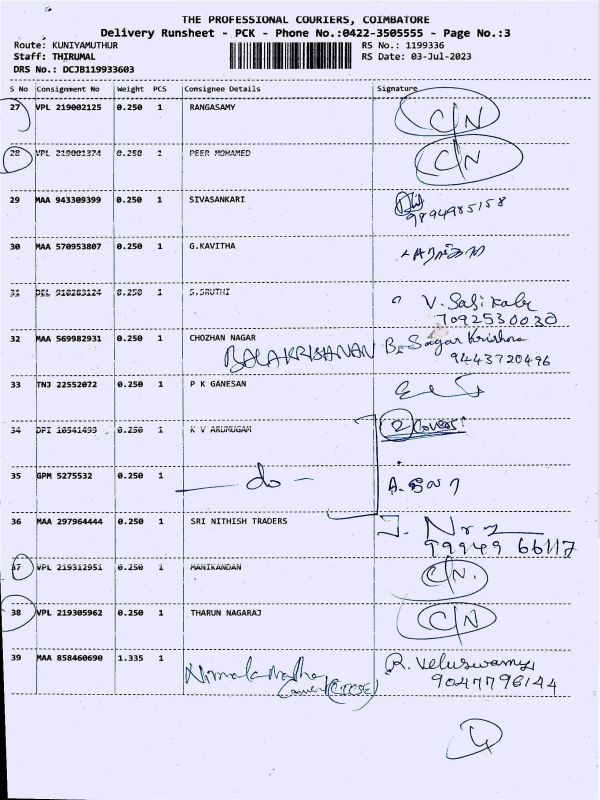 THE PROFESSIONAL COURIERS, COIMBATORE
Delivery Runsheet - PCK - Phone No.:0422-3505555 - Page No.:3
Route: KUNIYAMUTHUR RS No.: 1199336
Staff: THIRUMAL RS Date: 03-Jul-2023
DRS No.: DCJB119933603
S No Consignment No Weight PCS Consignee Details Signature
27 VPL 219002125 0.250 1 RANGASAMY C/N
28 VPL 219001374 0.250 1 PEER MOHAMED C/N
29 MAA 943309399 0.250 1 SIVASANKARI
9894985158
30 MAA 570953807 0.250 1 G.KAVITHA
31 DEL 910283124 0.250 1 S.SRUTHI V.
7092530030
32 MAA 569982931 0.250 1 CHOZHAN NAGAR B. Sagar Krishna
BALAKRISHNAN 9443720496
33 TNJ 22552072 0.250 1 P K GANESAN
34 DPI 10541499 0.250 1 K V ARUMUGAM 2 Covers
35 GPM 5275532 0.250 1 - do - A.
36 MAA 297964444 0.250 1 SRI NITHISH TRADERS
99949 66117
37 VPL 219312951 0.250 1 MANIKANDAN C/N.
38 VPL 219305962 0.250 1 THARUN NAGARAJ C/N
39 MAA 858460690 1.335 1 R. Veluswamy
9047796144